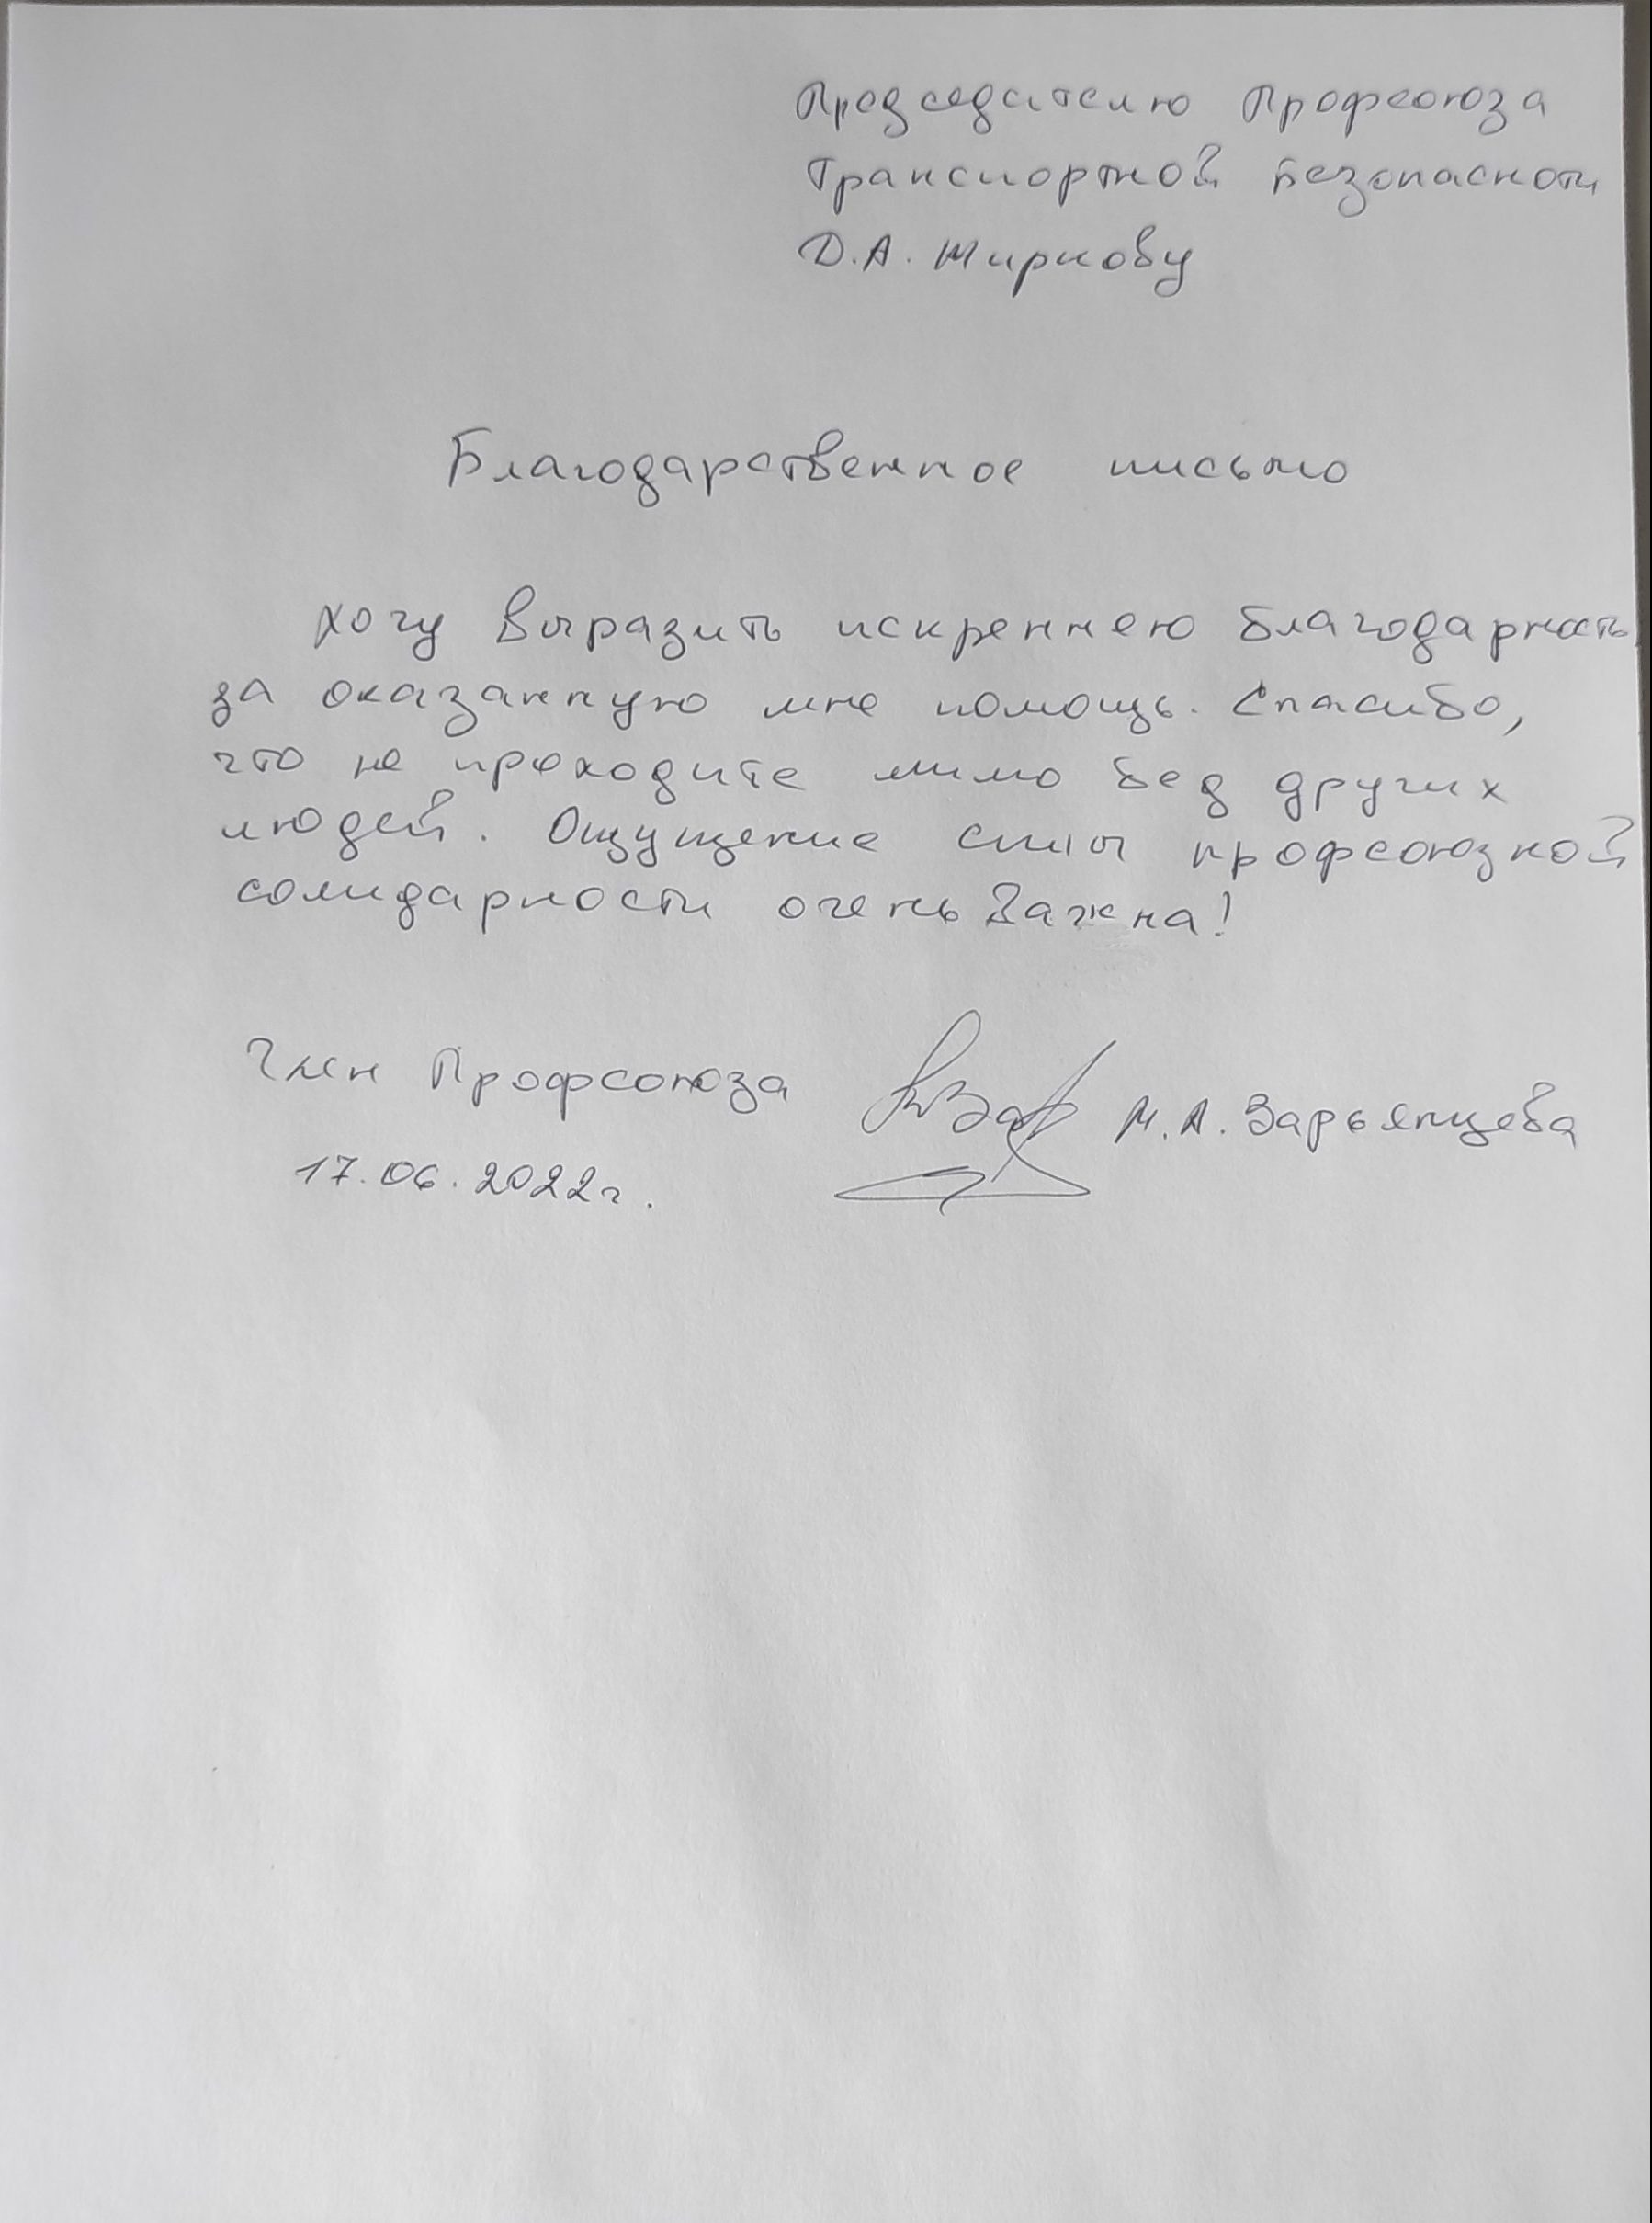 Председателю Профсоюза
Транспортной Безопасности
Д.А. Жиркову
Благодарственное письмо
Хочу выразить искреннею благодарность
за оказанную мне помощь. Спасибо,
что не проходите мимо бед других
людей. Ощущение силы профсоюзной
солидарности очень важна!
Член Профсоюза М.А. Зарьянцева
17.06.2022г.